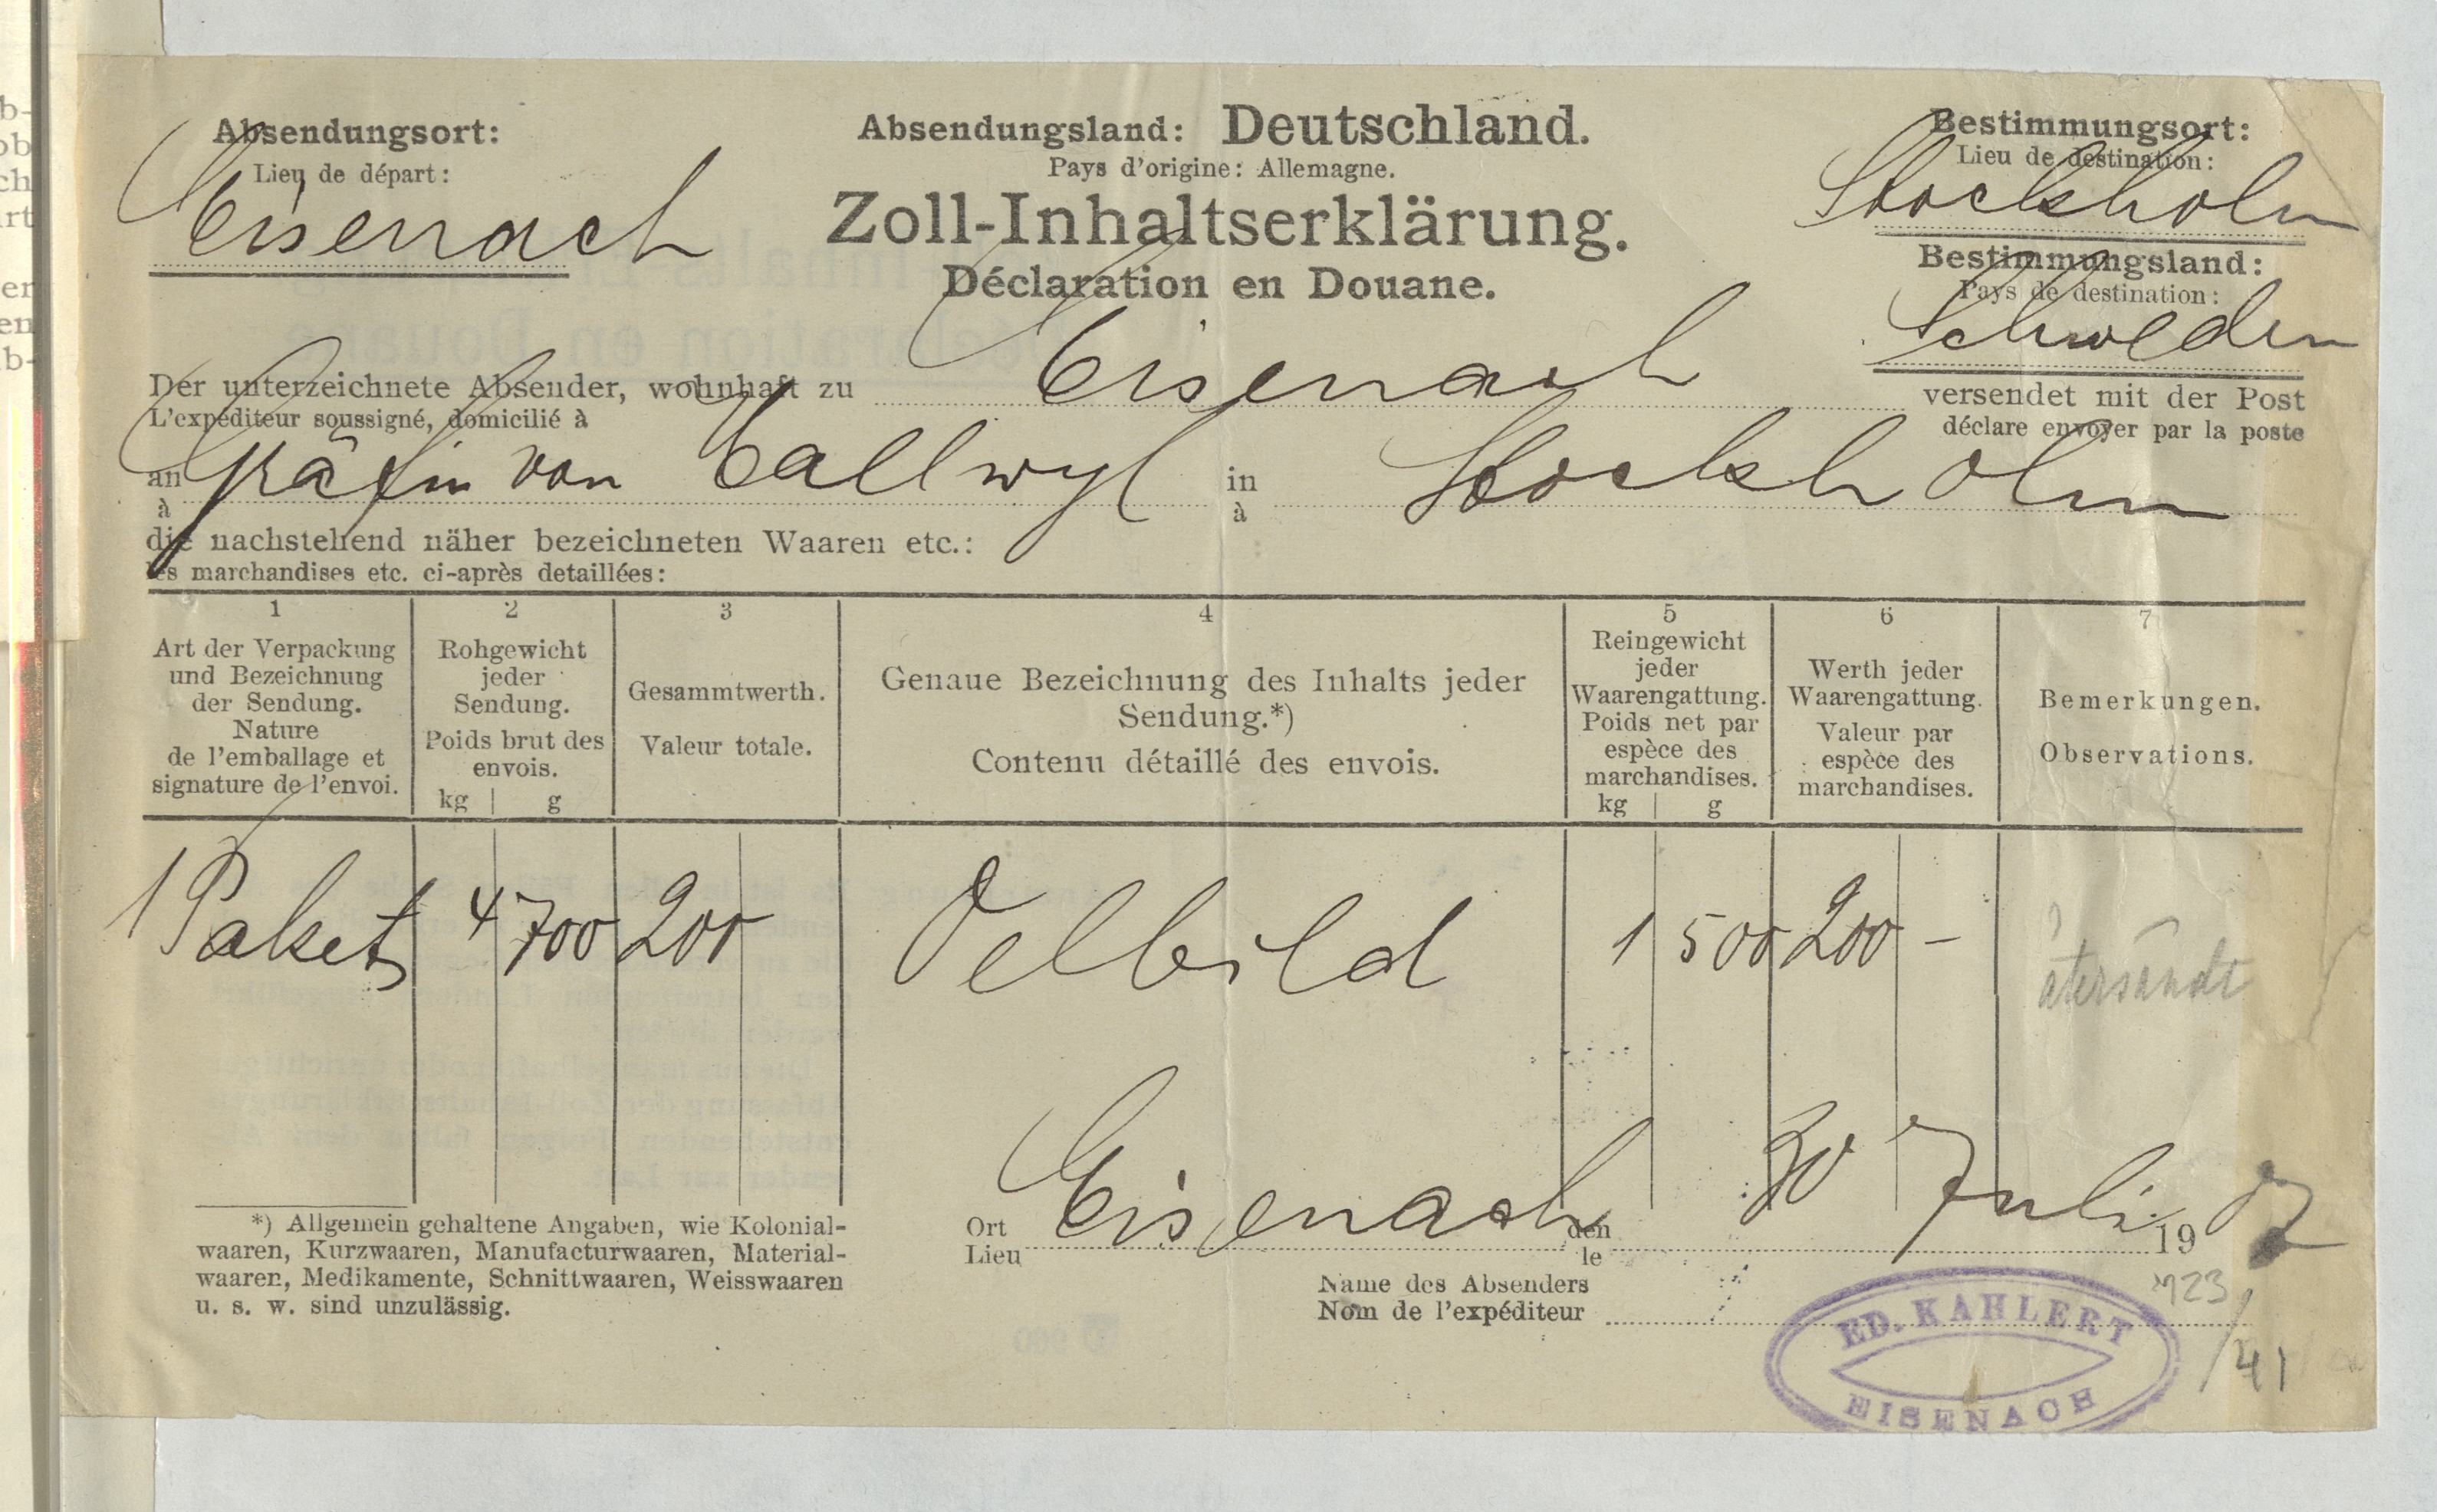 Absendungsort:
Lieu de départ:
Eisenach
Absendungsland: Deutschland.
Pays d'origine: Allemagne.
Zoll-Inhaltserklärung.
Déclaration en Douane.
Bestimmungsort:
Lieu de destination:
Stockholm
Bestimmungsland:
Pays de destination:
Schweden
Der unterzeichnete Absender, wohnhaft zu Eisenach versendet mit der Post
L'expéditeur soussigné, domicilié à déclare envoyer par la poste
an Gräfin von Hallwyl in Stockholm
à à
die nachstehend näher bezeichneten Waaren etc.:
les marchandises etc. ci-après detaillées:
1
Art der Verpackung
und Bezeichnung
der Sendung.
Nature
de l'emballage et
signature de l'envoi.
2
Rohgewicht
jeder
Sendung.
Poids brut des
envois.
kg g
3
Gesammtwerth.
Valeur totale.
4
Genaue Bezeichnung des Inhalts jeder
Sendung.*)
Contenu détaillé des envois.
5
Reingewicht
jeder
Waarengattung.
Poids net par
espèce des
marchandises.
kg g
6
Werth jeder
Waarengattung.
Valeur par
espèce des
marchandises.
7
Bemerkungen.
Observations.
1 Paket 4 700 200 Oelbild 1 500 200 –
återsändt
Ort Eisenach den 30 Juli 19 07
Lieu le
Name des Absenders
Nom de l'expéditeur
*) Allgemein gehaltene Angaben, wie Kolonial-
waaren, Kurzwaaren, Manufacturwaaren, Material-
waaren, Medikamente, Schnittwaaren, Weisswaaren
u. s. w. sind unzulässig.
ED. KAHLERT
EISENACH
723
/41